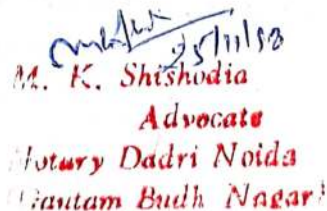 25/11/13
M. K. Shishodia
Advocate
Notary Dadri Noida
Gautam Budh Nagar